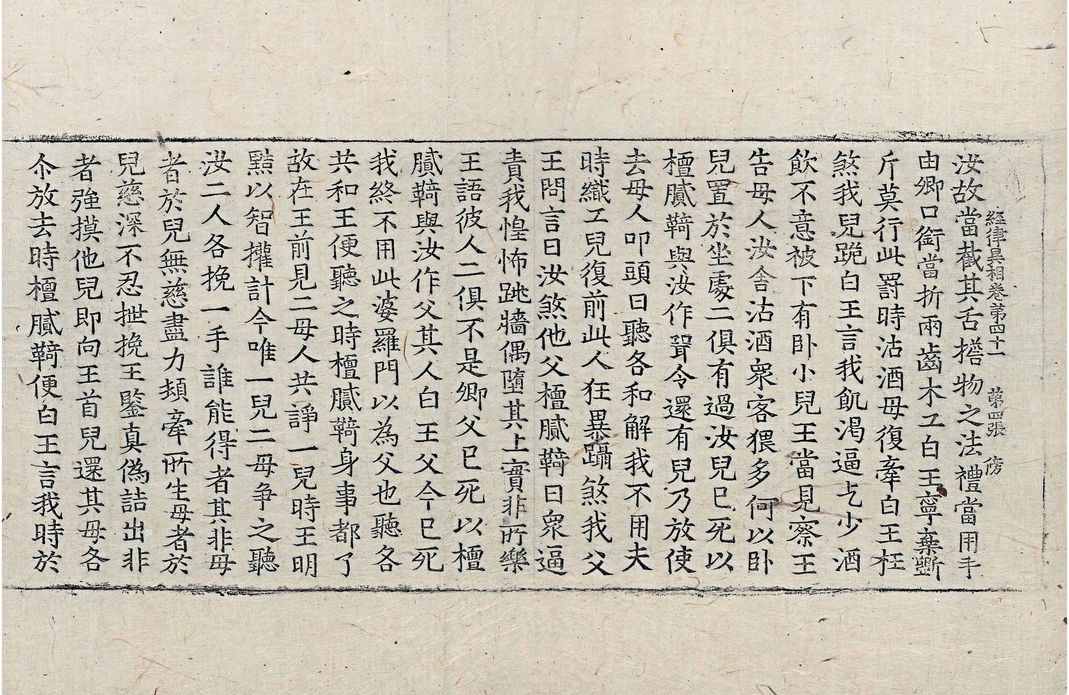 經律異相卷第四十一 第四張 傍
汝故當截其舌擔物之法禮當用手
由卿口銜當折兩齒木工白王寧棄斲
斤莫行此罸時沽酒母復牽白王枉
煞我兒跪白王言我飢渴逼乞少酒
飲不意被下有卧小兒王當見察王
告母人汝舍沽酒衆客猥多何以卧
兒置於坐處二俱有過汝兒已死以
檀膩䩭與汝作聟令還有兒乃放使
去母人叩頭曰聽各和解我不用夫
時織工兒復前此人狂暴躡煞我父
王問言曰汝煞他父檀膩䩭曰衆逼
責我惶怖跳牆偶墮其上實非所樂
王語彼人二俱不是卿父已死以檀
膩䩭與汝作父其人白王父今已死
我終不用此婆羅門以為父也聽各
共和王便聽之時檀膩䩭身事都了
故在王前見二母人共諍一兒時王明
黠以智權計今唯一兒二母爭之聽
汝二人各挽一手誰能得者其非母
者於兒無慈盡力頓牽所生母者於
兒慈深不忍拽挽王鑒真偽詰出非
者強摸他兒即向王首兒還其母各
尒放去時檀膩䩭便白王言我時於